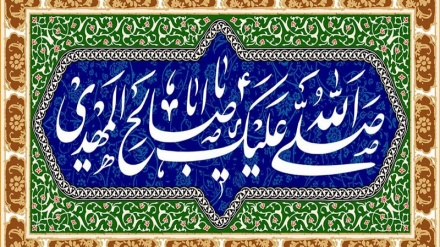 صَلَّی اللهُ عَلَیکَ یا اَبا صالِح المَهدی